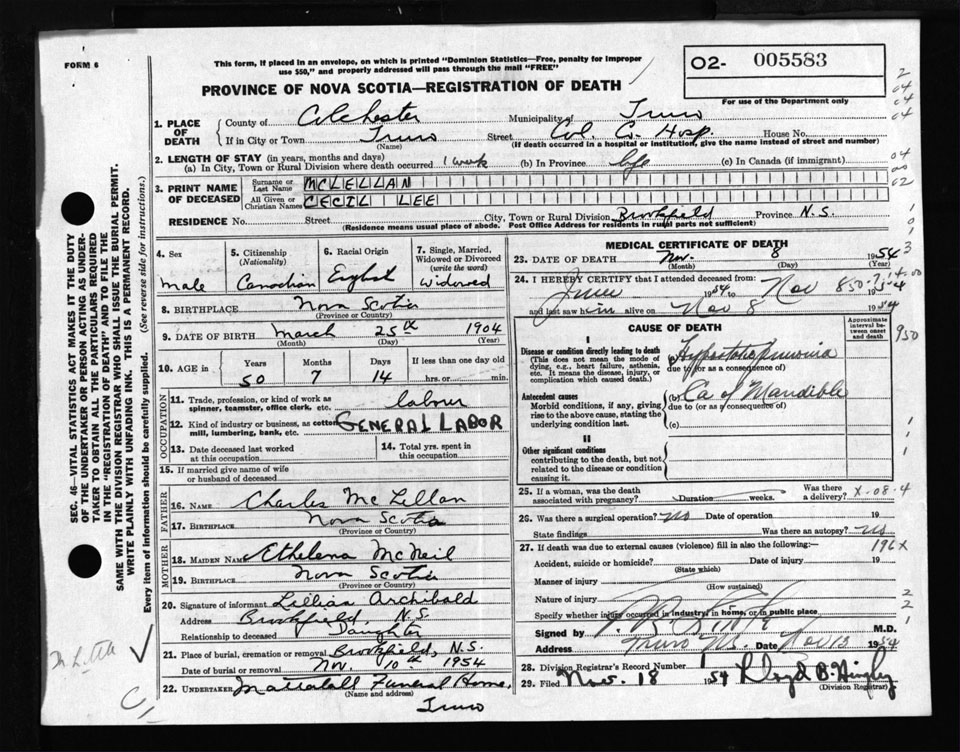 FORM 6
This form, if placed in an envelope, on which is printed "Dominion Statistics—Free, penalty for improper
use $50," and properly addressed will pass through the mail "FREE"
O2- 005583
For use of the Department only
PROVINCE OF NOVA SCOTIA—REGISTRATION OF DEATH
1. PLACE OF DEATH
County of Colchester Municipality of Truro
If in City or Town Truro Street Col. Co. Hosp. House No.
(Name) (If death occurred in a hospital or institution, give the name instead of street and number)
2. LENGTH OF STAY (in years, months and days)
(a) In City, Town or Rural Division where death occurred 1 week (b) In Province life (c) In Canada (if immigrant)
3. PRINT NAME OF DECEASED
Surname or Last Name MCLELLAN
All Given or Christian Names CECIL LEE
RESIDENCE No. Street City, Town or Rural Division Brookfield Province N.S.
(Residence means usual place of abode. Post Office Address for residents in rural parts not sufficient)
4. Sex
male
5. Citizenship
(Nationality)
Canadian
6. Racial Origin
English
7. Single, Married,
Widowed or Divorced
(write the word)
widowed
8. BIRTHPLACE Nova Scotia
(Province or Country)
9. DATE OF BIRTH March 25th 1904
(Month) (Day)
10. AGE in Years Months Days If less than one day old
50 7 14 hrs. or min.
OCCUPATION
11. Trade, profession, or kind of work as
spinner, teamster, office clerk, etc. labour
12. Kind of industry or business, as cotton
mill, lumbering, bank, etc. GENERAL LABOR
13. Date deceased last worked
at this occupation
14. Total yrs. spent in
this occupation
15. If married give name of wife
or husband of deceased
FATHER
16. NAME Charles McLellan
17. BIRTHPLACE Nova Scotia
(Province or Country)
MOTHER
18. MAIDEN NAME Ethelena McNeil
19. BIRTHPLACE Nova Scotia
(Province or Country)
20. Signature of informant Lillian Archibald
Address Brookfield, N.S.
Relationship to deceased Daughter
21. Place of burial, cremation or removal Brookfield, N.S.
Date of burial or removal Nov. 10th 1954
22. UNDERTAKER Mattatall Funeral Home,
(Name and address)
Truro
MEDICAL CERTIFICATE OF DEATH
23. DATE OF DEATH Nov. 8 1954
(Month) (Day)
24. I HEREBY CERTIFY that I attended deceased from:
June 1954 to Nov 8
and last saw him alive on Nov 8 1954
CAUSE OF DEATH
Approximate
interval between onset
and death
I
Disease or condition directly leading to death
(This does not mean the mode of
dying, e.g., heart failure, asthenia,
etc. It means the disease, injury, or
complication which caused death.)
(a) Hypostatic pneumonia
due to (or as a consequence of)
Antecedent causes
Morbid conditions, if any, giving
rise to the above cause, stating the
underlying condition last.
(b) Ca of Mandible
due to (or as a consequence of)
(c)
II
Other significant conditions
contributing to the death, but not
related to the disease or condition
causing it.
25. If a woman, was the death
associated with pregnancy? Duration weeks. Was there
a delivery? X-08-4
26. Was there a surgical operation? no Date of operation 19
State findings Was there an autopsy? no
27. If death was due to external causes (violence) fill in also the following:— 196X
Accident, suicide or homicide? Date of injury 19
(State which)
Manner of injury
(How sustained)
Nature of injury
Specify whether injury occurred in industry, in home, or in public place
Signed by M.D.
Address Truro N.S. Date Nov 13 1954
28. Division Registrar's Record Number
29. Filed Nov. 18 1954 Lloyd B. Hingley
(Division Registrar)
SEC. 46—VITAL STATISTICS ACT MAKES IT THE DUTY
OF THE UNDERTAKER OR PERSON ACTING AS UNDER-
TAKER TO OBTAIN ALL THE PARTICULARS REQUIRED
IN THE "REGISTRATION OF DEATH" AND TO FILE THE
SAME WITH THE DIVISION REGISTRAR WHO SHALL ISSUE THE BURIAL PERMIT.
WRITE PLAINLY WITH UNFADING INK. THIS IS A PERMANENT RECORD.
Every item of information should be carefully supplied. (See reverse side for instructions.)